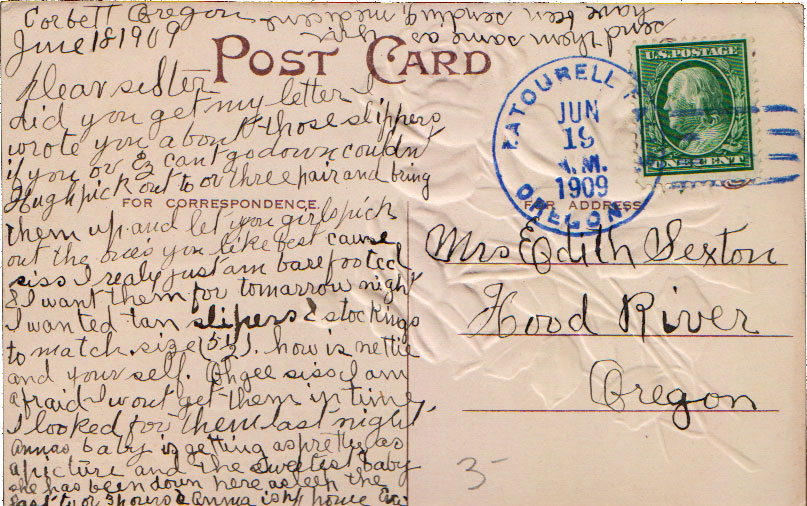 Corbett Oregon
June 18 1909
send them same as they
have been sending medicine
POST CARD
LATOURELL
JUN
19
A.M.
1909
OREGON
U.S. POSTAGE
ONE CENT
FOR CORRESPONDENCE.
FOR ADDRESS
Dear sister
did you get my letter I
wrote you about those slippers
if you or E cant go down couldn't
Hugh pick out to or three pair and bring
them up and let you girls pick
out the one's you like best cause
siss I realy just am barefooted
& I want them for tomorrow night
I wanted tan slipers & stockings
to match. size (5½). how is nettie
and your self. Oh gee siss I am
afraid I wont get them in time,
I looked for them last night.
annas baby is getting as pretty as
a picture and the sweetest baby
she has been down here asleep the
last 2 or 3 hours & Anna is home
Mrs Edith Sexton
Hood River
Oregon
3-